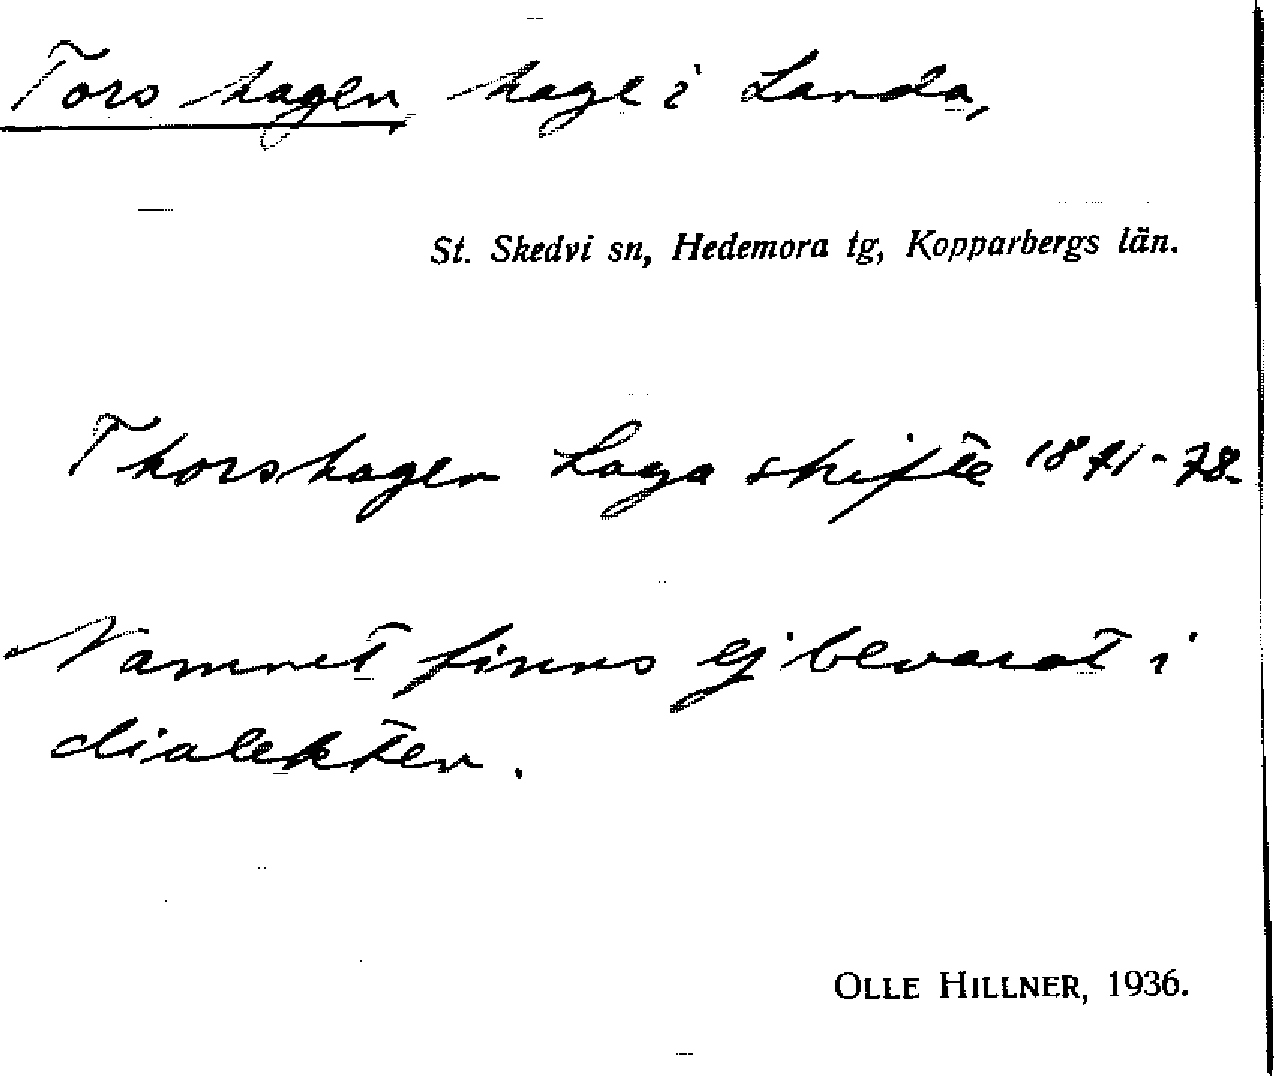 Torshagen, hage i Landa,
St. Skedvi sn, Hedemora tg, Kopparbergs län.
Thorshagen Laga skifte 1871-78.
Namnet finns ej bevarat i
dialekten.
OLLE HILLNER, 1936.